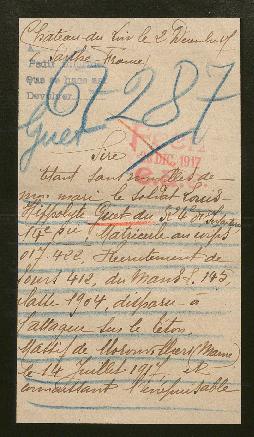 Chateau du Lir le 2 Décembre 17
Sarthe France
Petit
Que se hace
Devolver
67287
Guet
DIC. 1917
Sire
Etant sans nouvelles de
mon mari le soldat Louis
Hippolyte Guet du 324e
14e Cie, Matricule au corps
017.422, Recrutement de
Tours 412, du Mans 145,
classe 1904, disparu à
l'attaque sur le Téton,
Massif de Moronvilliers (Marne)
le 14 Juillet 1917, et
connaissant l'inépuisable